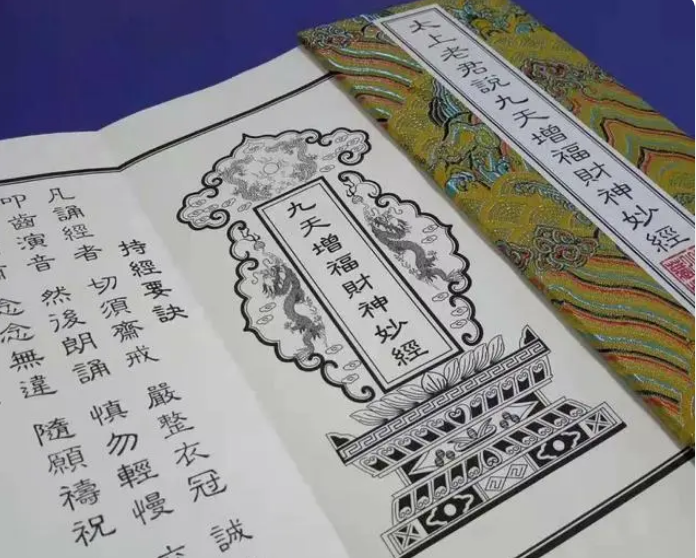 太上老君說九天增福財神妙經
九天增福財神妙經
持經要訣
凡誦經者 切須齋戒 嚴整衣冠 誠
叩齒演音 然後朗誦 慎勿輕慢
念念無違 隨願禱祝